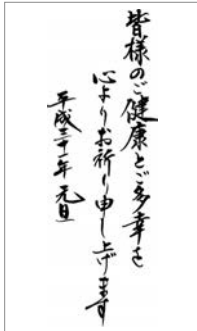 皆様のご健康とご多幸を
心よりお祈り申し上げます
平成三十一年 元旦